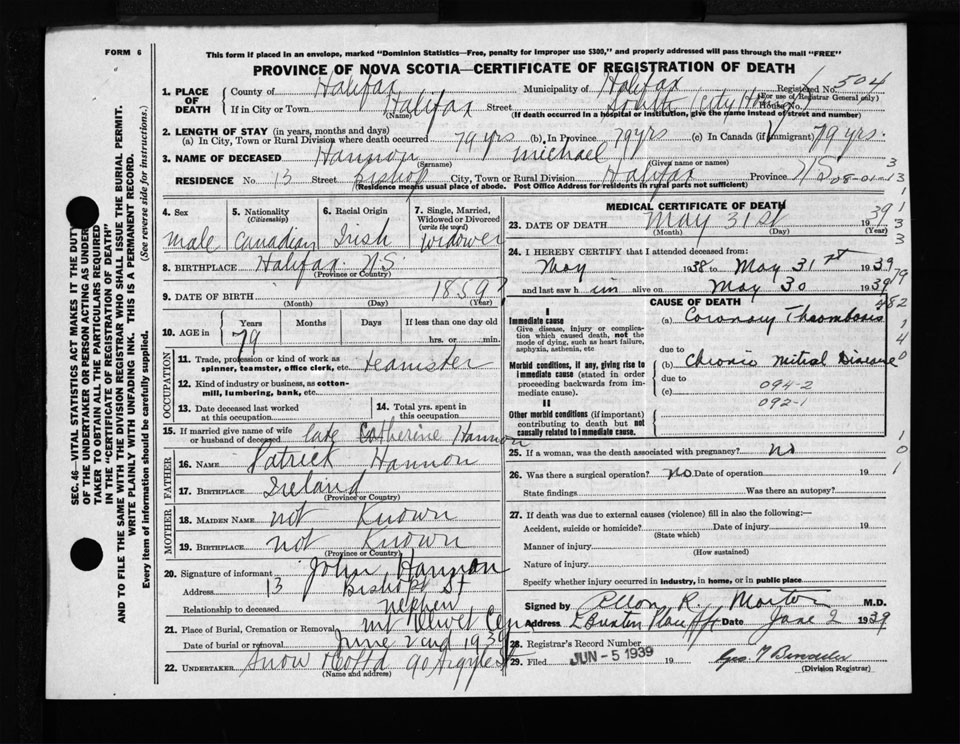 FORM 6
This form if placed in an envelope, marked "Dominion Statistics—Free, penalty for improper use $300," and properly addressed will pass through the mail "FREE"
PROVINCE OF NOVA SCOTIA—CERTIFICATE OF REGISTRATION OF DEATH
SEC. 46—VITAL STATISTICS ACT MAKES IT THE DUTY
OF THE UNDERTAKER OR PERSON ACTING AS UNDER-
TAKER TO OBTAIN ALL THE PARTICULARS REQUIRED
IN THE "CERTIFICATE OF REGISTRATION OF DEATH"
AND TO FILE THE SAME WITH THE DIVISION REGISTRAR WHO SHALL ISSUE THE BURIAL PERMIT.
WRITE PLAINLY WITH UNFADING INK. THIS IS A PERMANENT RECORD.
Every item of information should be carefully supplied. (See reverse side for instructions.)
1. PLACE OF DEATH County of Halifax Municipality of Halifax Registered No. 504
(For use of Registrar General only)
If in City or Town Halifax Street South (City Home) House No.
(Name) (If death occurred in a hospital or institution, give the name instead of street and number)
2. LENGTH OF STAY (in years, months and days)
(a) In City, Town or Rural Division where death occurred 79 yrs (b) In Province 79 yrs (c) In Canada (if immigrant) 79 yrs.
3. NAME OF DECEASED Hannon Michael
(Surname) (Given name or names)
RESIDENCE No. 13 Street Bishop City, Town or Rural Division Halifax Province NS
(Residence means usual place of abode. Post Office Address for residents in rural parts not sufficient)
08-01-13
4. Sex male
5. Nationality (Citizenship) Canadian
6. Racial Origin Irish
7. Single, Married, Widowed or Divorced (write the word) Widower
8. BIRTHPLACE Halifax N.S.
(Province or Country)
9. DATE OF BIRTH 1859?
(Month) (Day) (Year)
10. AGE in Years Months Days If less than one day old
79 hrs. or min.
OCCUPATION
11. Trade, profession or kind of work as spinner, teamster, office clerk, etc. teamster
12. Kind of industry or business, as cotton-mill, lumbering, bank, etc.
13. Date deceased last worked at this occupation
14. Total yrs. spent in this occupation
15. If married give name of wife or husband of deceased late Catherine Hannon
FATHER
16. NAME Patrick Hannon
17. BIRTHPLACE Ireland
(Province or Country)
MOTHER
18. MAIDEN NAME not Known
19. BIRTHPLACE not Known
(Province or Country)
20. Signature of informant John Hannon
Address 13 Bishop St
Relationship to deceased nephew
21. Place of Burial, Cremation or Removal mt Olivet Cem
Date of burial or removal June 2nd 1939
22. UNDERTAKER Snow & Co Ltd 90 Argyle St
(Name and address)
MEDICAL CERTIFICATE OF DEATH
23. DATE OF DEATH May 31st 1939
(Month) (Day) (Year)
24. I HEREBY CERTIFY that I attended deceased from:
May 1938 to May 31st 1939
and last saw him alive on May 30 1939
CAUSE OF DEATH
I
Immediate cause
Give disease, injury or complication which caused death, not the mode of dying, such as heart failure, asphyxia, asthenia, etc
(a) Coronary Thrombosis
due to
Morbid conditions, if any, giving rise to immediate cause (stated in order proceeding backwards from immediate cause).
(b) Chronic Mitral Disease
due to
(c)
094-2
092-1
II
Other morbid conditions (if important) contributing to death but not causally related to immediate cause.
25. If a woman, was the death associated with pregnancy? no
26. Was there a surgical operation? no Date of operation 19
State findings Was there an autopsy?
27. If death was due to external causes (violence) fill in also the following:—
Accident, suicide or homicide? Date of injury 19
(State which)
Manner of injury
(How sustained)
Nature of injury
Specify whether injury occurred in industry, in home, or in public place
Signed by Allon R. Morton M.D.
Address Hfx Date June 2 1939
28. Registrar's Record Number
29. Filed JUN - 5 1939 19
(Division Registrar)